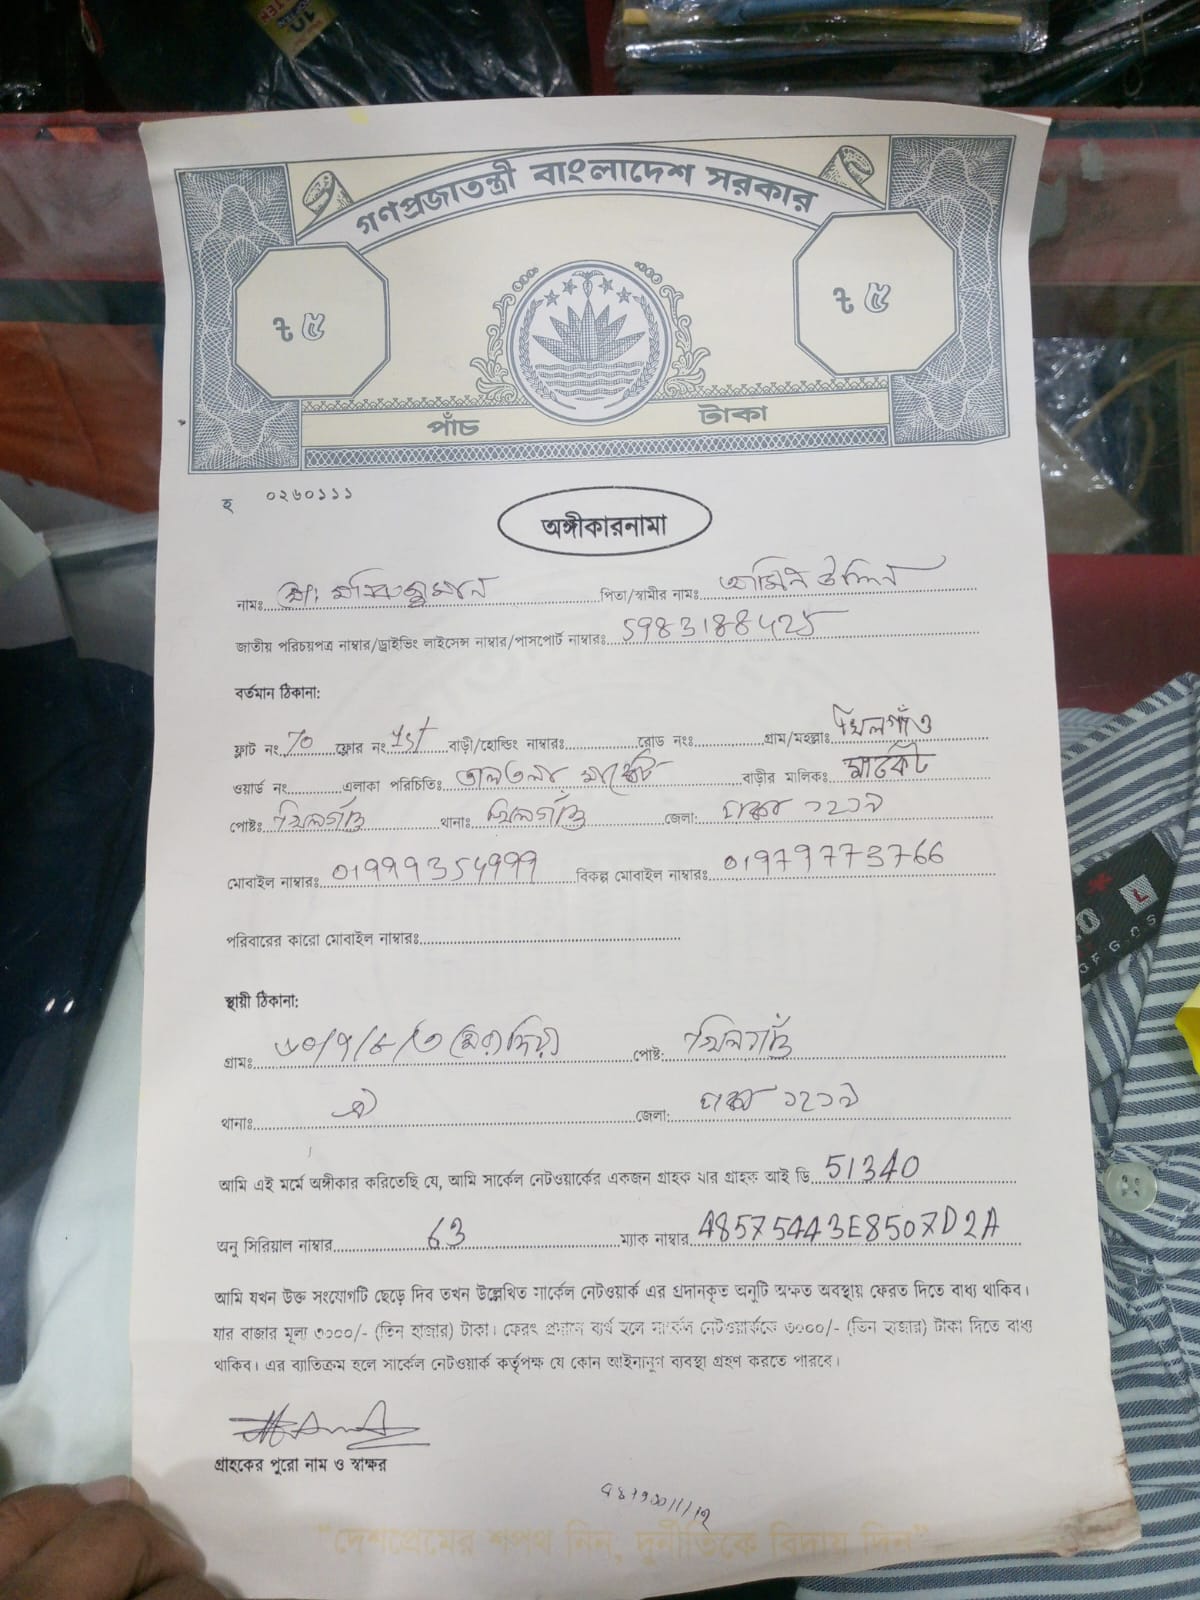 গণপ্রজাতন্ত্রী বাংলাদেশ সরকার
৳ ৫
৳ ৫
পাঁচ টাকা
হ ০২৬০১১১
অঙ্গীকারনামা
নামঃ মোঃ পিতা/স্বামীর নামঃ আমিন উদ্দিন
জাতীয় পরিচয়পত্র নাম্বার/ড্রাইভিং লাইসেন্স নাম্বার/পাসপোর্ট নাম্বারঃ
বর্তমান ঠিকানা:
ফ্লাট নং 70 ফ্লোর নং 1st বাড়ী/হোল্ডিং নাম্বারঃ রোড নংঃ গ্রাম/মহল্লাঃ খিলগাঁও
ওয়ার্ড নং এলাকা পরিচিতিঃ তালতলা মার্কেট বাড়ীর মালিকঃ মার্কেট
পোষ্টঃ খিলগাঁও থানাঃ খিলগাঁও জেলা: ঢাকা ১২১৯
মোবাইল নাম্বারঃ বিকল্প মোবাইল নাম্বারঃ 01979773766
পরিবারের কারো মোবাইল নাম্বারঃ
স্থায়ী ঠিকানা:
গ্রামঃ পোষ্ট: খিলগাঁও
থানাঃ ঐ জেলা: ঢাকা ১২১৯
আমি এই মর্মে অঙ্গীকার করিতেছি যে, আমি সার্কেল নেটওয়ার্কের একজন গ্রাহক যার গ্রাহক আই ডি 51340
অনু সিরিয়াল নাম্বার 63 ম্যাক নাম্বার 48575443E8507D2A
আমি যখন উক্ত সংযোগটি ছেড়ে দিব তখন উল্লেখিত সার্কেল নেটওয়ার্ক এর প্রদানকৃত অনুটি অক্ষত অবস্থায় ফেরত দিতে বাধ্য থাকিব।
যার বাজার মূল্য ৩০০০/- (তিন হাজার) টাকা। ফেরৎ প্রদানে ব্যর্থ হলে সার্কেল নেটওয়ার্ককে ৩০০০/- (তিন হাজার) টাকা দিতে বাধ্য
থাকিব। এর ব্যতিক্রম হলে সার্কেল নেটওয়ার্ক কর্তৃপক্ষ যে কোন আইনানুগ ব্যবস্থা গ্রহণ করতে পারবে।
গ্রাহকের পুরো নাম ও স্বাক্ষর
"দেশপ্রেমের শপথ নিন, দুর্নীতিকে বিদায় দিন"